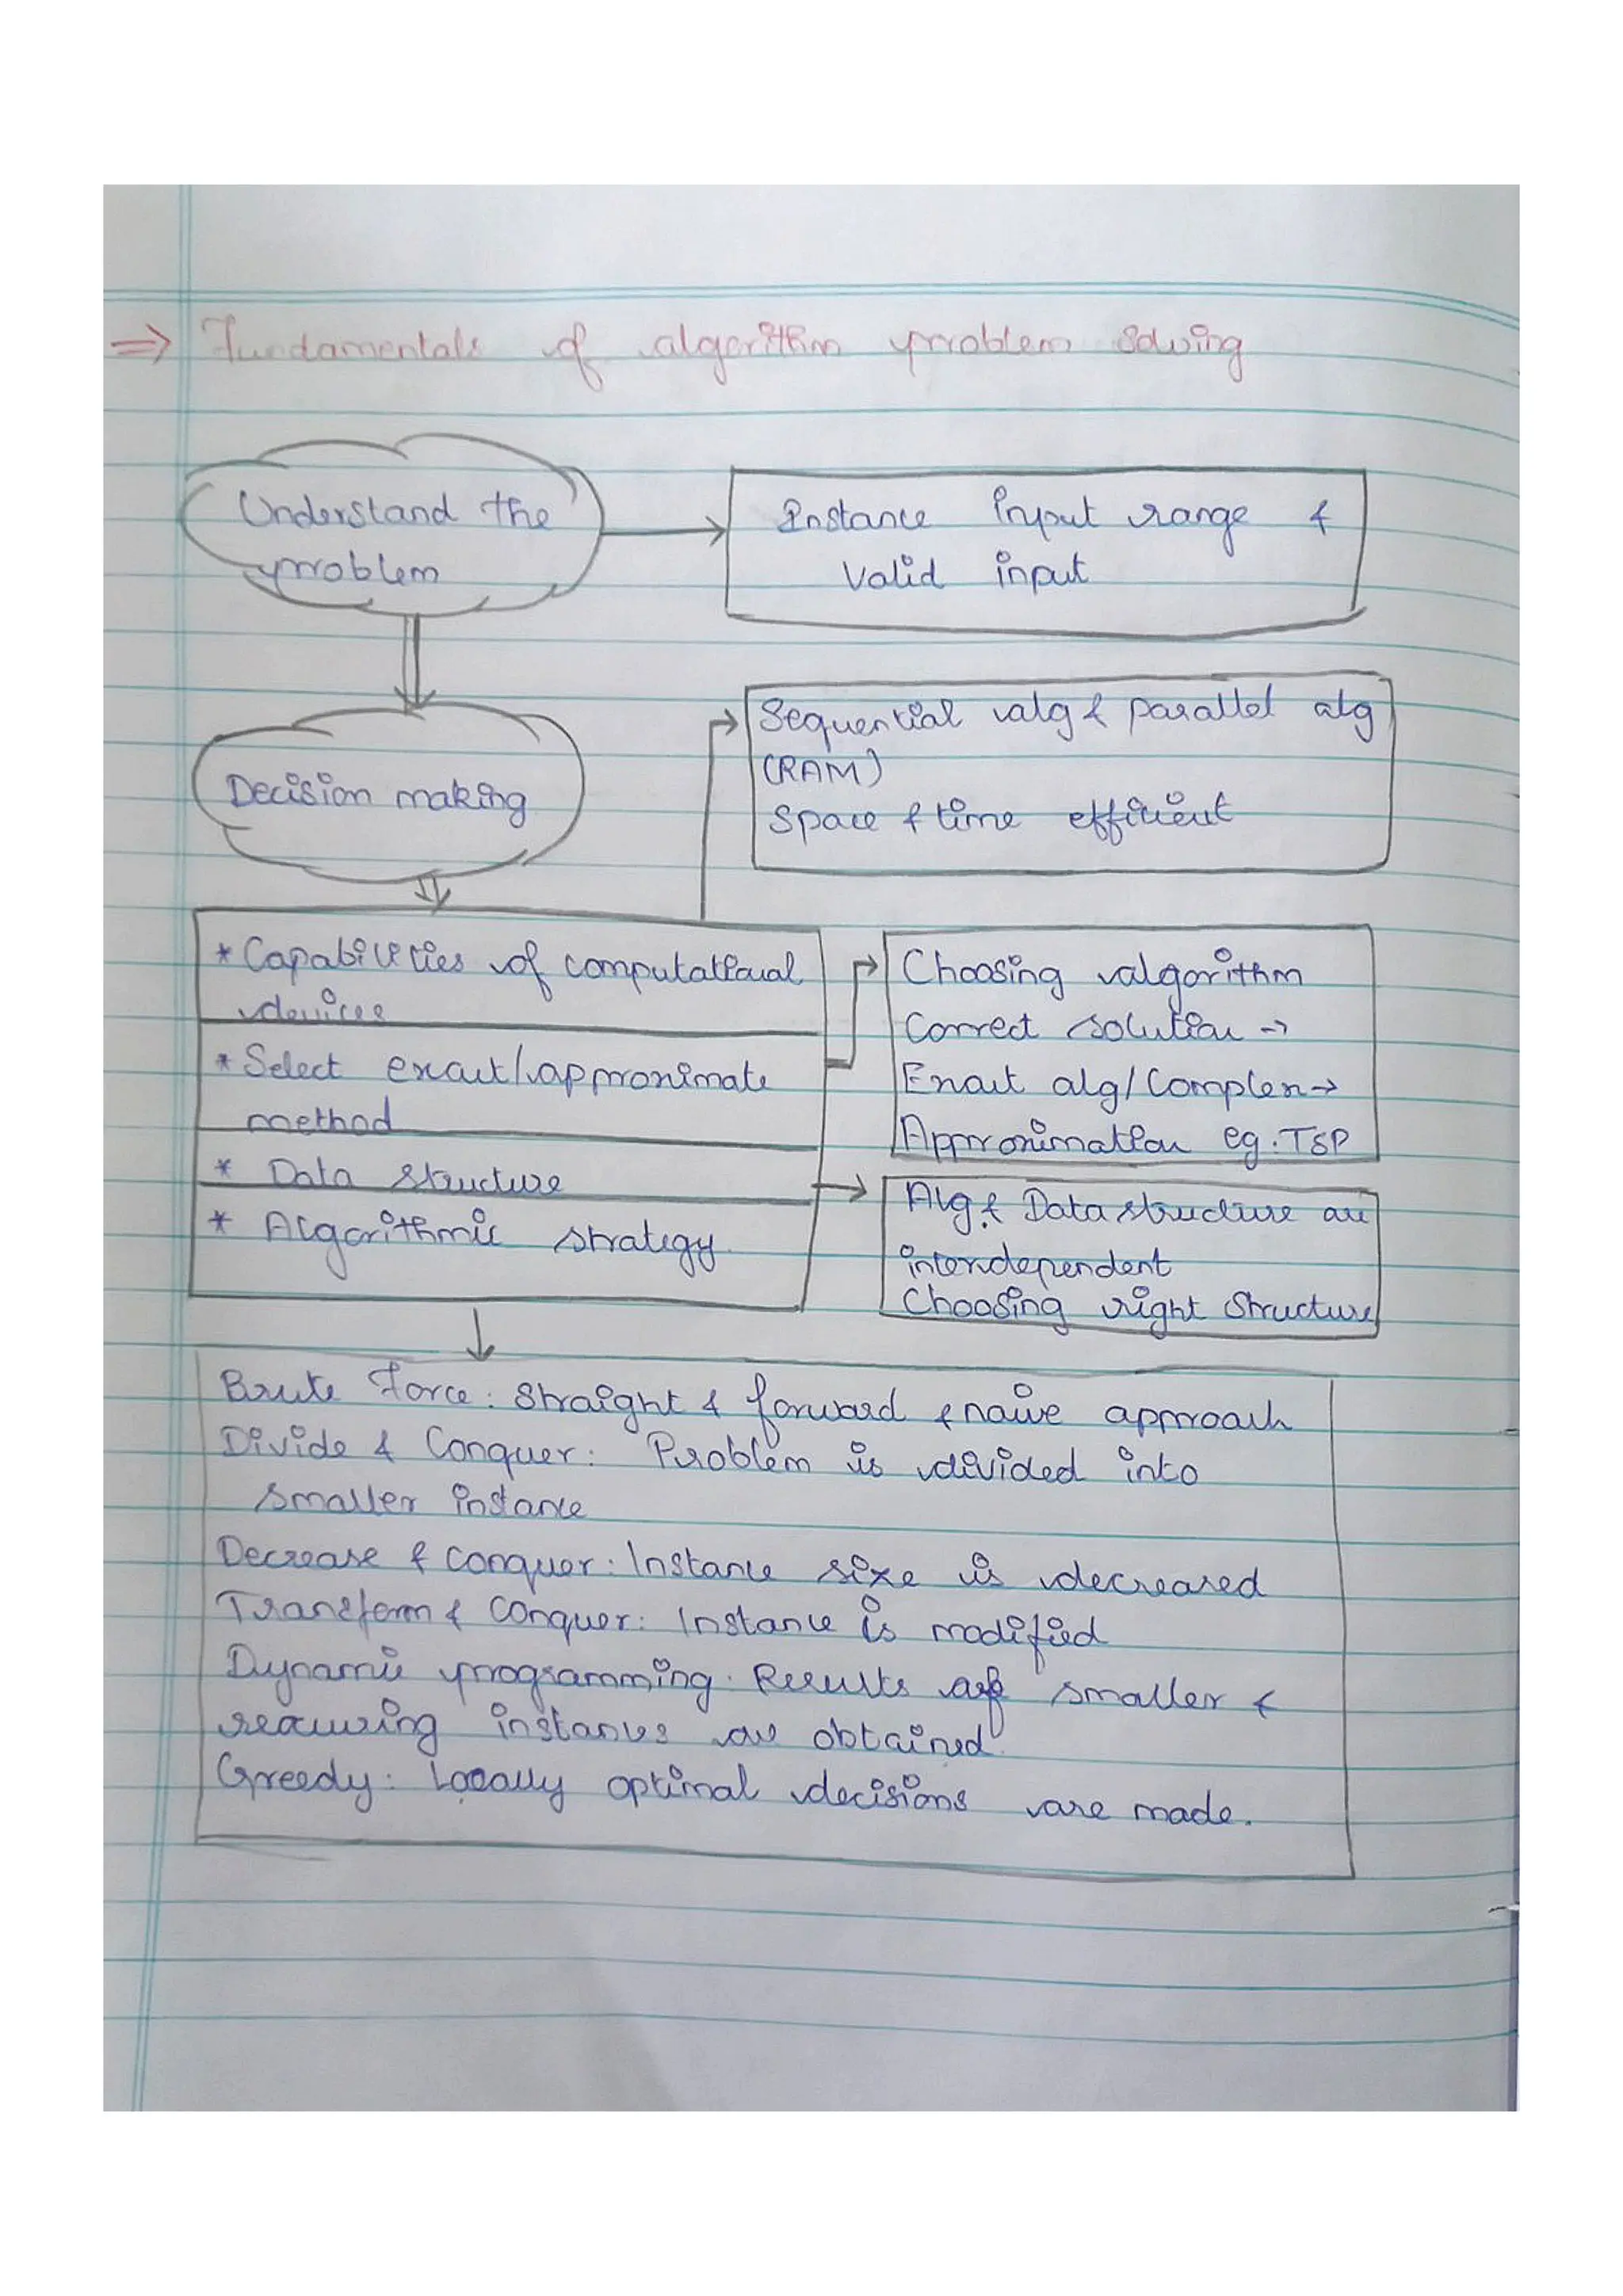 ⇒ Fundamentals of algorithm problem solving
Understand the
problem
Instance input range &
Valid input
Sequential alg & parallel alg
(RAM)
Space & time efficient
Decision making
* Capabilities of computational
devices
* Select exact/approximate
method
* Data structure
* Algorithmic strategy.
Choosing algorithm
Correct solution →
Exact alg/Complex→
Approximation eg. TSP
Alg & Data structure are
interdependent
Choosing right structure
Brute Force: Straight & forward & naive approach
Divide & Conquer: Problem is divided into
smaller instance
Decrease & conquer: Instance size is decreased
Transform & conquer: Instance is modified
Dynamic programming: Results of smaller &
recurring instances are obtained.
Greedy: Locally optimal decisions are made.